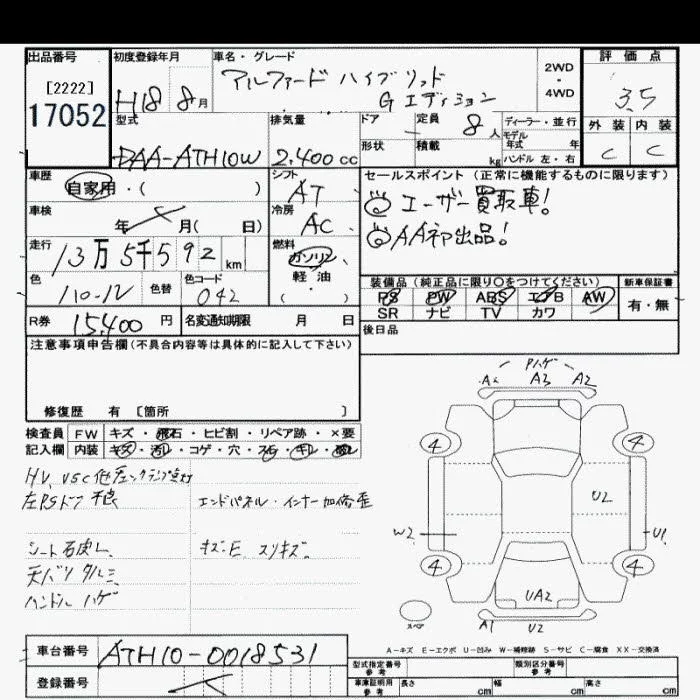 出品番号 初度登録年月 車名・グレード 評価点
[2222] 17052
H18年 8月
アルファード ハイブリッド
Gエディション
2WD・4WD
3.5
型式 排気量 ドア 定員 8人 ディーラー・並行
モデル年式 年
外装 内装
DAA-ATH10W 2.400cc 形状 積載 kg ハンドル 左・右
C C
車歴 自家用・( )
シフト AT
セールスポイント(正常に機能するものに限ります)
車検 年 月( 日)
冷房 AC
ユーザー買取車!
AA初出品!
走行 13万5千592km
燃料 ガソリン 軽油 ( )
色 色替 色コード 042
装備品(純正品に限り○をつけてください) 新車保証書
PS PW ABS エアB AW 有・無
SR ナビ TV カワ
R券 15,400円 名変通知期限 月 日
後日品
注意事項申告欄(不具合内容等は具体的に記入して下さい)
修復歴 有 [箇所 ]
検査員 FW キズ・飛石・ヒビ割・リペア跡・×要
記入欄 内装 キズ・汚レ・コゲ・穴・スレ・キレ・
HV、VSC他チェックランプ点灯
左PSドア不良 エンドパネル・インナー加修歪
シート石皮レ キズ・E スリキズ
天バリタルミ
ハンドルハゲ
Pハゲ
A3 A2
4 4
U2
W2 U1
4 4
UA2
スペア
A1 U2
A-キズ E-エクボ U-凹み W-補修跡 S-サビ C-腐食 XX-交換済
車台番号 ATH10-0018531
登録番号
型式指定番号 参考 類別区分番号 参考
車庫証明用 参考 長さ cm 幅 cm 高さ cm